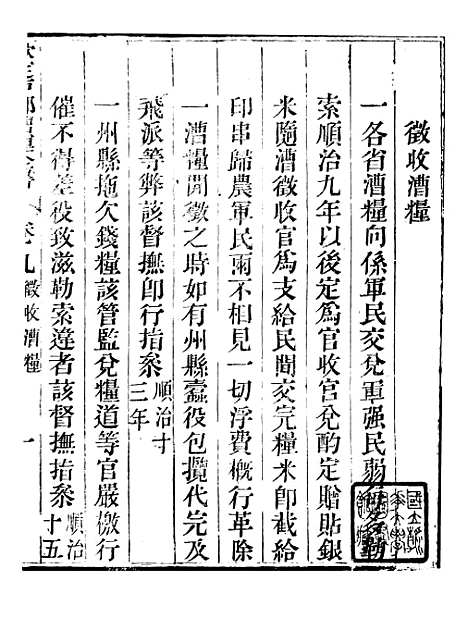 徵收漕糧
一各省漕糧向係軍民交兌軍强民弱多勒
索順治九年以後定爲官收官兌酌定贈貼銀
米隨漕徵收官爲支給民間交完糧米卽截給
印串歸農軍民兩不相見一切浮費概行革除
一漕糧開徵之時如有州縣蠹役包攬代完及
飛派等弊該督撫卽行指叅順治十三年
一州縣拖欠錢糧該管監兌糧道等官嚴檄行
催不得差役致滋勒索違者該督撫指叅順治十五
卷九 徵收漕糧 一